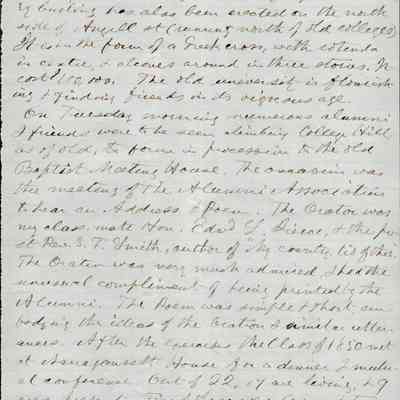 has also been erected on the north
side of Angell st (running north of old colleges)
It is in the form of a Greek cross, with rotunda
in centre, & alcoves around in three stories. It
cost 100,000. The old university is flourish-
ing & finding friends in its vigorous age.
On Tuesday morning numerous alumni
& friends were to be seen climbing College Hill
as of old, to form in procession to the old
Baptist Meeting House. The occasion was
the meeting of the Alumni Association
to hear an Address & Poem. The Orator was
my class mate Hon. Edw'd L. & the po-
et Rev. S. F. Smith, author of "My country, tis of thee.
The Oration was very much admired, & had the
unusual compliment of being printed by the
Alumni. The Poem was simple & short, em-
bodying the ideas of the Oration & similar utter-
ances. After the exercises the Class of 1850 met
at Narragansett House for a dinner & mutu-
al conference. Out of 22, 17 are living, & 9